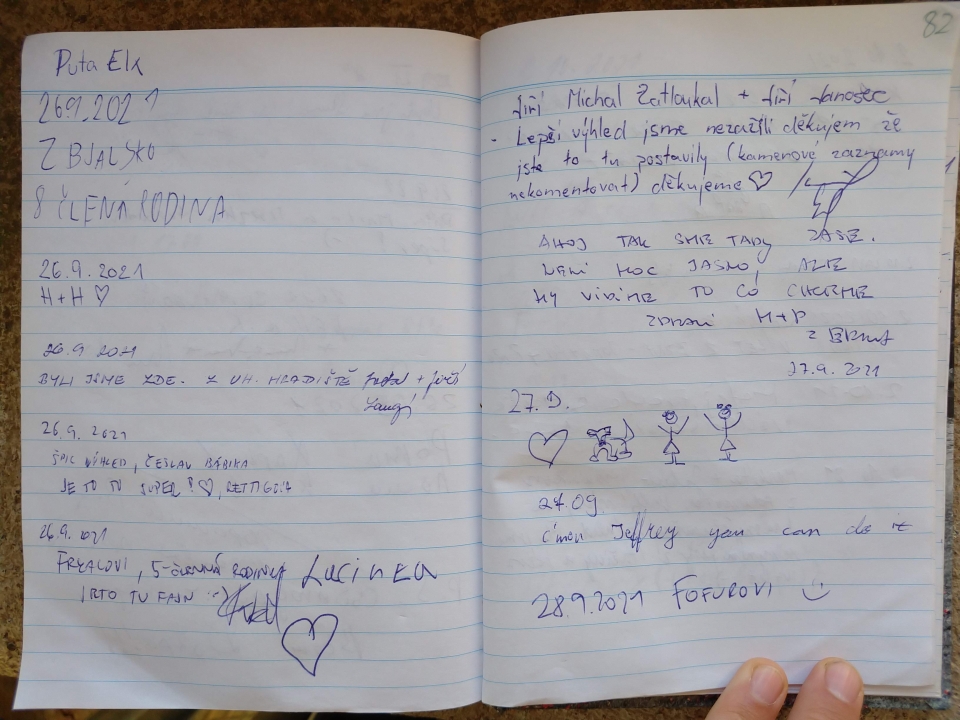 Puta Elk
26.9.2021
Z BJALSKO
8 ČLENÁ RODINA
26.9.2021
H+H ♡
26.9 2021
BYLI JSME ZDE. Z UH. HRADIŠTĚ + Jiří
26.9. 2021
ŠPIC VÝHLED, ČESLAV BABIKA
JE TO TU SUPER! ♡,
26.9. 2021
FRYALOVI, 5-ČLENNÁ RODINKA Lucinka
JRTO TU FAJN :-)
82
Jiří Michal Zatloukal + Jiří Janošec
- Lepší výhled jsme nezažili děkujem že
jste to tu postavily (kamerové záznamy
nekomentovat) děkujeme ♡
AHOJ TAK SME TADY ZASE.
NENÍ MOC JASNO, ALE
MY VIDÍME TO CO CHCEME
ZDRAVÍ M+P
Z BRNA
27.9. 2021
27. 9.
27.09
c'mon Jeffrey you can do it
28.9.2021 FOFUROVI